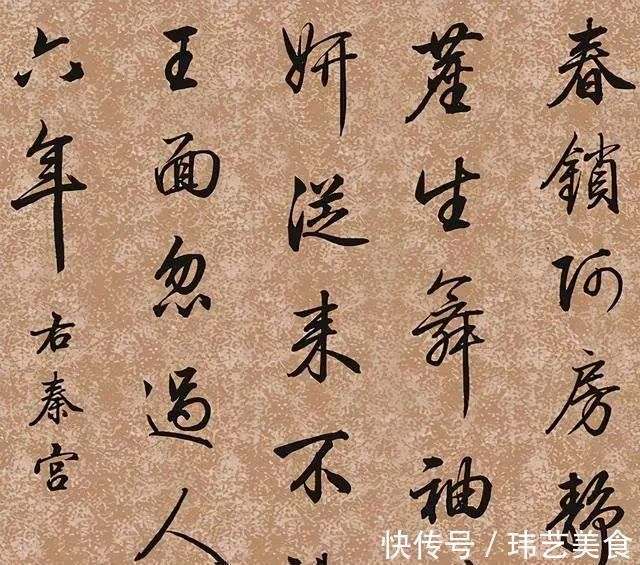 春鎖阿房靜
塵生舞袖
妍從来不
王面忽過人
六年
右秦宮
快传号 / 玮艺美食